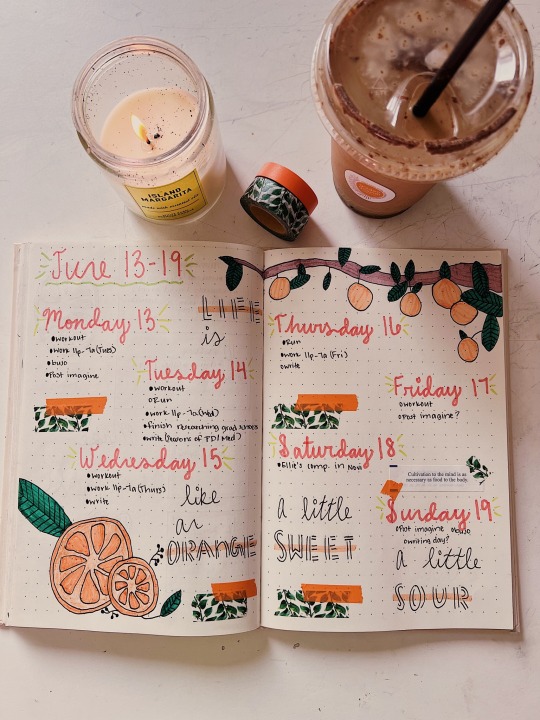 ISLAND
MARGARITA
June 13-19
LIFE
is
Monday 13
workout
work 11p-7a (Tues)
bujo
Post imagine
Tuesday 14
workout
Run
work 11p-7a (Wed)
finish researching grad schools
write (Lessons of TD/Med)
Wednesday 15
workout
work 11p-7a (Thurs)
write
like
an
ORANGE
Thursday 16
Run
work 11p-7a (Fri)
write
Friday 17
workout
Post imagine?
Saturday 18
Ellie's comp. in Novi
Cultivation to the mind is as
necessary as food to the body.
a little
SWEET
Sunday 19
Post imagine bujo
writing day?
a little
SOUR